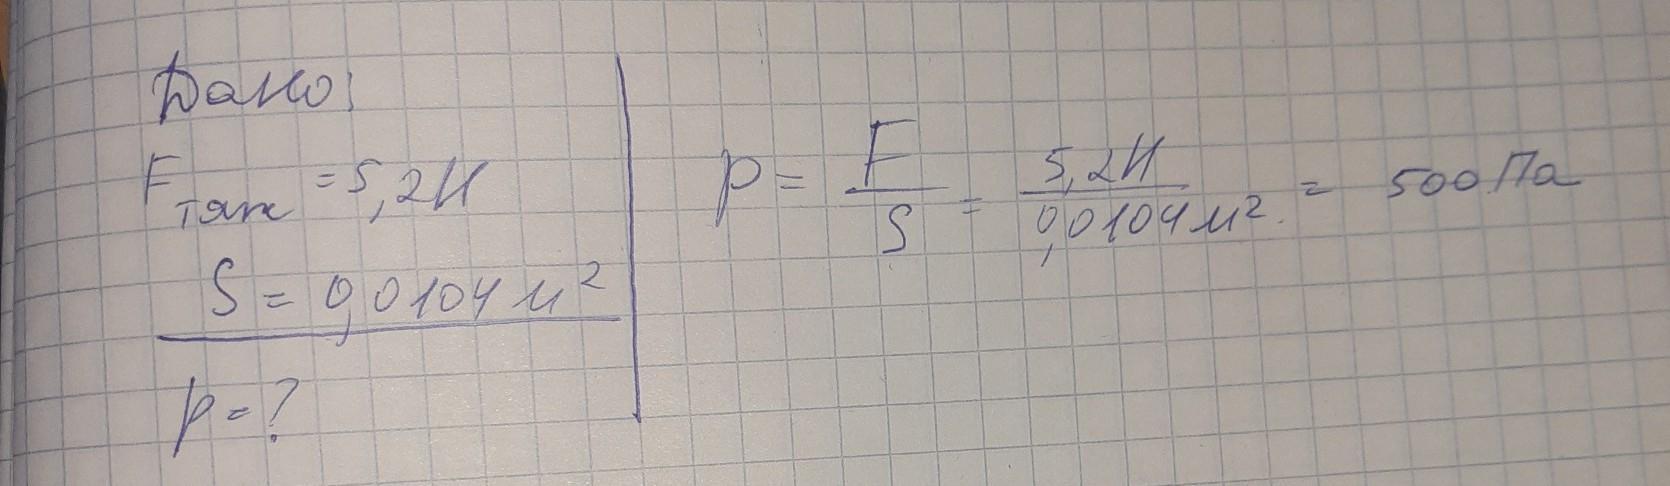 Дано:
F тяж = 5,2Н
S = 0,0104 м²
p = ?
p = F/S = 5,2Н/0,0104 м² = 500 Па